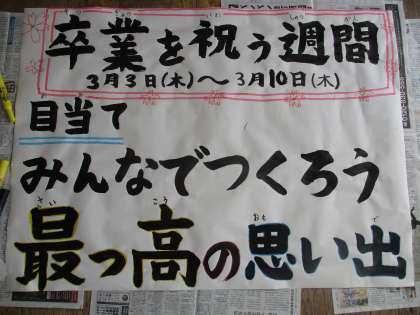 卒業を祝う週間
3月3日(木)〜3月10日(木)
目当て
みんなでつくろう
最っ高の思い出